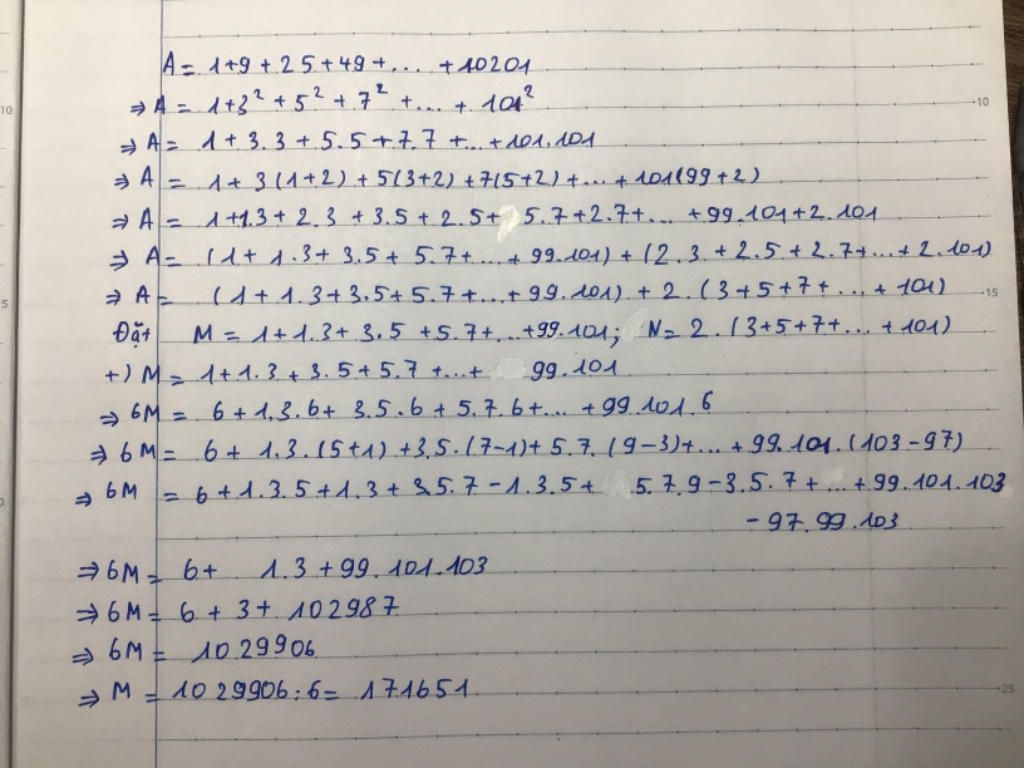 A = 1+9+25+49+... +10201
⇒ A = 1+3² + 5² + 7² +... + 101²
⇒ A = 1 + 3.3 + 5.5 + 7.7 + ... +101.101
⇒ A = 1+ 3(1+2) + 5(3+2) +7(5+2) +... + 101(99+2)
⇒ A = 1+1.3+ 2.3 + 3.5 + 2.5+ 5.7+2.7+... +99.101+2.101
⇒ A = (1+ 1.3+ 3.5+ 5.7+...+ 99.101) + (2.3 + 2.5 + 2.7+...+ 2.101)
⇒ A = (1 + 1.3+3.5+5.7+...+99.101) + 2.(3+5+7+...+ 101)
Đặt M = 1+1.3+ 3.5 +5.7+...+99.101; N= 2.(3+5+7+...+ 101)
+) M = 1+1.3+3.5+5.7 +...+ 99.101
⇒ 6M = 6 + 1.3.6+ 3.5.6 + 5.7.6+... +99.101.6
⇒ 6M = 6+ 1.3.(5+1) +3.5.(7-1)+ 5.7.(9-3)+...+ 99.101.(103-97)
⇒ 6M = 6+1.3.5+1.3+ 3.5.7-1.3.5+ 5.7.9-3.5.7 + ...+99.101.103
- 97.99.103
⇒ 6M = 6+ 1.3 +99.101.103
⇒ 6M = 6 + 3+ 102987
⇒ 6M = 1029906
⇒ M = 1029906:6= 171651
10
15
25
10
5